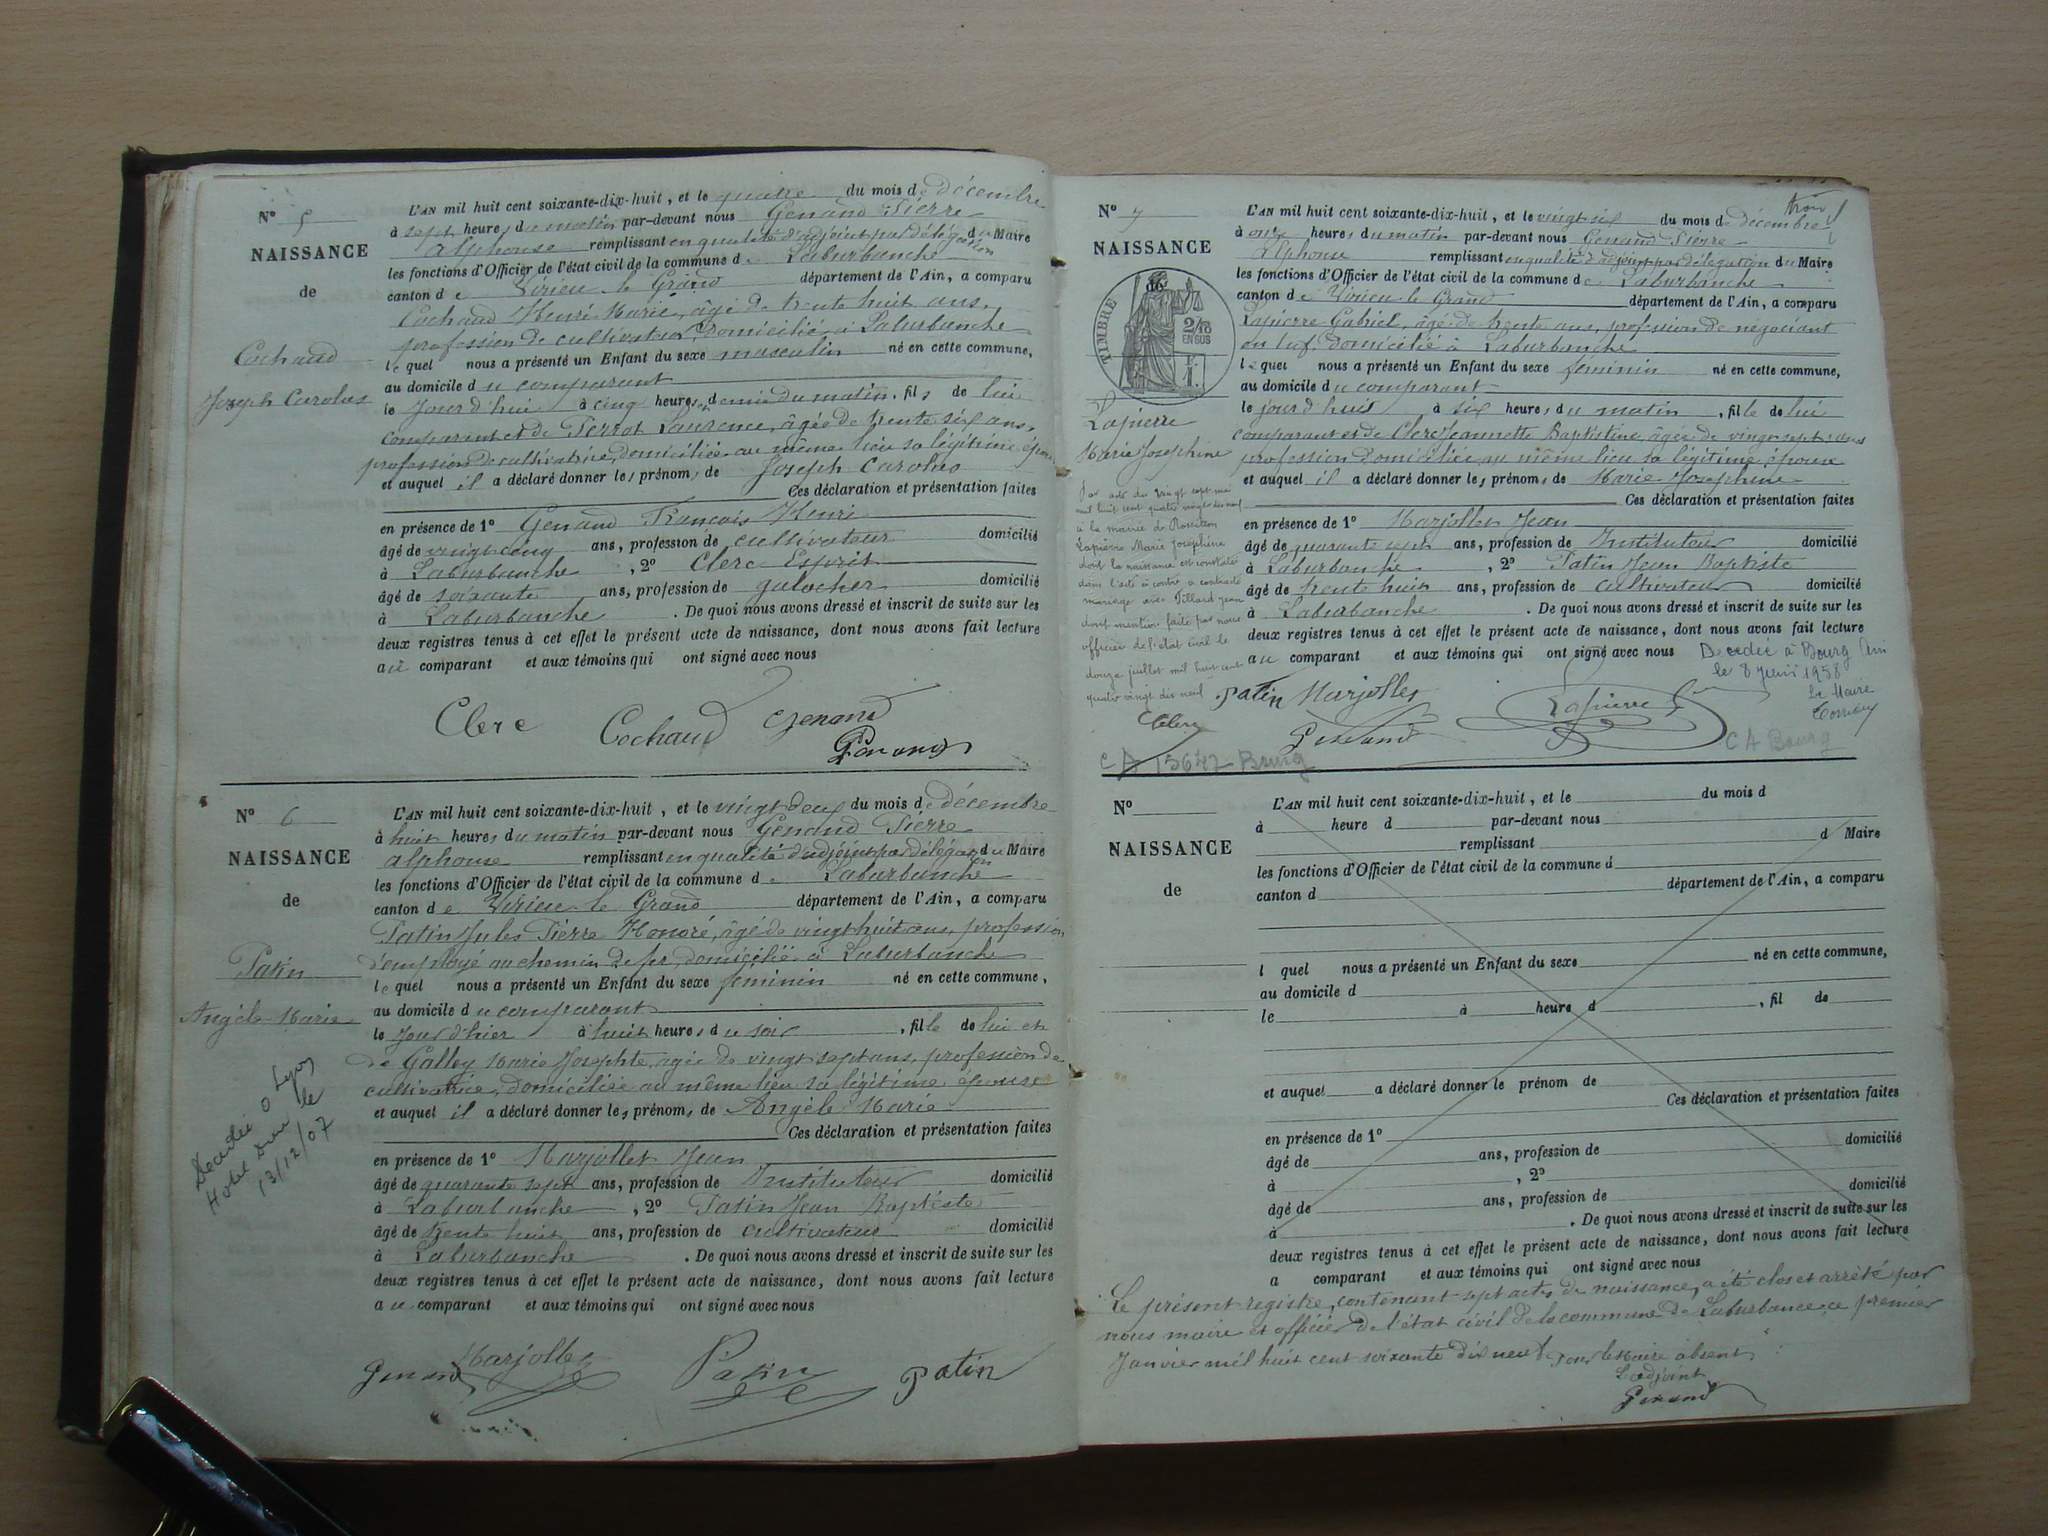 N° 5
NAISSANCE
de
Cochand
Joseph Carolus
L'AN mil huit cent soixante-dix-huit, et le quatre du mois de décembre
à sept heures du matin par-devant nous Genand Pierre
Alphonse remplissant en qualité d'adjoint par délégation du Maire
les fonctions d'Officier de l'état civil de la commune de Laburbanche
canton de Virieu-le-Grand département de l'Ain, a comparu
Cochand Henri Marie, âgé de trente huit ans,
profession de cultivateur, domicilié à Laburbanche
lequel nous a présenté un Enfant du sexe masculin né en cette commune,
au domicile du comparant
le jour d'hui à cinq heures et demie du matin, fils de lui
comparant et de Perrot Laurence, âgée de trente six ans,
profession de cultivatrice, domiciliée au même lieu sa légitime épouse
et auquel il a déclaré donner les prénoms de Joseph Carolus
Ces déclaration et présentation faites
en présence de 1° Genand François Henri
âgé de vingt cinq ans, profession de cultivateur domicilié
à Laburbanche, 2° Clerc Esprit
âgé de soixante ans, profession de galocher domicilié
à Laburbanche. De quoi nous avons dressé et inscrit de suite sur les
deux registres tenus à cet effet le présent acte de naissance, dont nous avons fait lecture
au comparant et aux témoins qui ont signé avec nous
Clerc Cochand Genand
Genand
N° 6
NAISSANCE
de
Patin
Angèle Marie
Decedée a Lyon
Hotel Dieu le
13/12/07
L'AN mil huit cent soixante-dix-huit, et le vingt deux du mois de décembre
à huit heures du matin par-devant nous Genand Pierre
Alphonse remplissant en qualité d'adjoint par délégation du Maire
les fonctions d'Officier de l'état civil de la commune de Laburbanche
canton de Virieu-le-Grand département de l'Ain, a comparu
Patin Jules Pierre Honoré, âgé de vingt huit ans, profession
d'employé au chemin de fer, domicilié à Laburbanche
lequel nous a présenté un Enfant du sexe féminin né en cette commune,
au domicile du comparant
le jour d'hier à huit heures du soir, fille de lui et
de Galley Marie Josephte, agée de vingt sept ans, profession de
cultivatrice, domiciliée au même lieu sa légitime épouse
et auquel il a déclaré donner les prénoms de Angèle Marie
Ces déclaration et présentation faites
en présence de 1° Marjollet Jean
âgé de quarante sept ans, profession de Instituteur domicilié
à Laburbanche, 2° Patin Jean Baptiste
âgé de trente huit ans, profession de cultivateur domicilié
à Laburbanche. De quoi nous avons dressé et inscrit de suite sur les
deux registres tenus à cet effet le présent acte de naissance, dont nous avons fait lecture
au comparant et aux témoins qui ont signé avec nous
Genand Marjollet Patin Patin
N° 7
NAISSANCE
de
TIMBRE
2/10
EN SUS
Lapierre
Marie Josephine
Par acte du vingt sept mai
mil huit cent quatre vingt dix neuf
à la mairie de Rossillon
Lapierre Marie Josephine
dont la naissance est constatée
dans l'acte ci contre a contracté
mariage avec Billard Jean
dont mention faite par nous
officier de l'état civil le
douze juillet mil huit cent
quatre vingt dix neuf
L'AN mil huit cent soixante-dix-huit, et le vingt six du mois de décembre
à onze heures du matin par-devant nous Genand Pierre
Alphonse remplissant en qualité d'adjoint par délégation du Maire
les fonctions d'Officier de l'état civil de la commune de Laburbanche
canton de Virieu-le-Grand département de l'Ain, a comparu
Lapierre Gabriel, âgé de trente ans, profession de négociant
domicilié à Laburbanche
lequel nous a présenté un Enfant du sexe féminin né en cette commune,
au domicile du comparant
le jourd'hui à six heures du matin, fille de lui
comparant et de Clerc Jeannette Baptistine, âgée de vingt sept ans
profession domiciliée au même lieu sa légitime épouse
et auquel il a déclaré donner les prénoms de Marie Josephine
Ces déclaration et présentation faites
en présence de 1° Marjollet Jean
âgé de quarante sept ans, profession de Instituteur domicilié
à Laburbanche, 2° Patin Jean Baptiste
âgé de trente huit ans, profession de cultivateur domicilié
à Laburbanche. De quoi nous avons dressé et inscrit de suite sur les
deux registres tenus à cet effet le présent acte de naissance, dont nous avons fait lecture
au comparant et aux témoins qui ont signé avec nous
Decedee à Bourg Ain
le 8 Juin 1958
Le Maire
Patin Marjollet Lapierre G
Clerc Genand
CA 15647 Bourg
CA Bourg
N°
NAISSANCE
de
L'AN mil huit cent soixante-dix-huit, et le du mois d
à heure d par-devant nous
remplissant d Maire
les fonctions d'Officier de l'état civil de la commune d
canton d département de l'Ain, a comparu
l quel nous a présenté un Enfant du sexe né en cette commune,
au domicile d
le à heure d, fil de
et auquel a déclaré donner le prénom de
Ces déclaration et présentation faites
en présence de 1°
âgé de ans, profession de domicilié
à, 2°
âgé de ans, profession de domicilié
à. De quoi nous avons dressé et inscrit de suite sur les
deux registres tenus à cet effet le présent acte de naissance, dont nous avons fait lecture
a comparant et aux témoins qui ont signé avec nous
Le présent registre, contenant sept actes de naissance, a été clos et arrêté par
nous maire et officier de l'état civil de la commune de Laburbance, ce premier
Janvier mil huit cent soixante dix neuf. Pour le Maire absent
L'adjoint
Genand